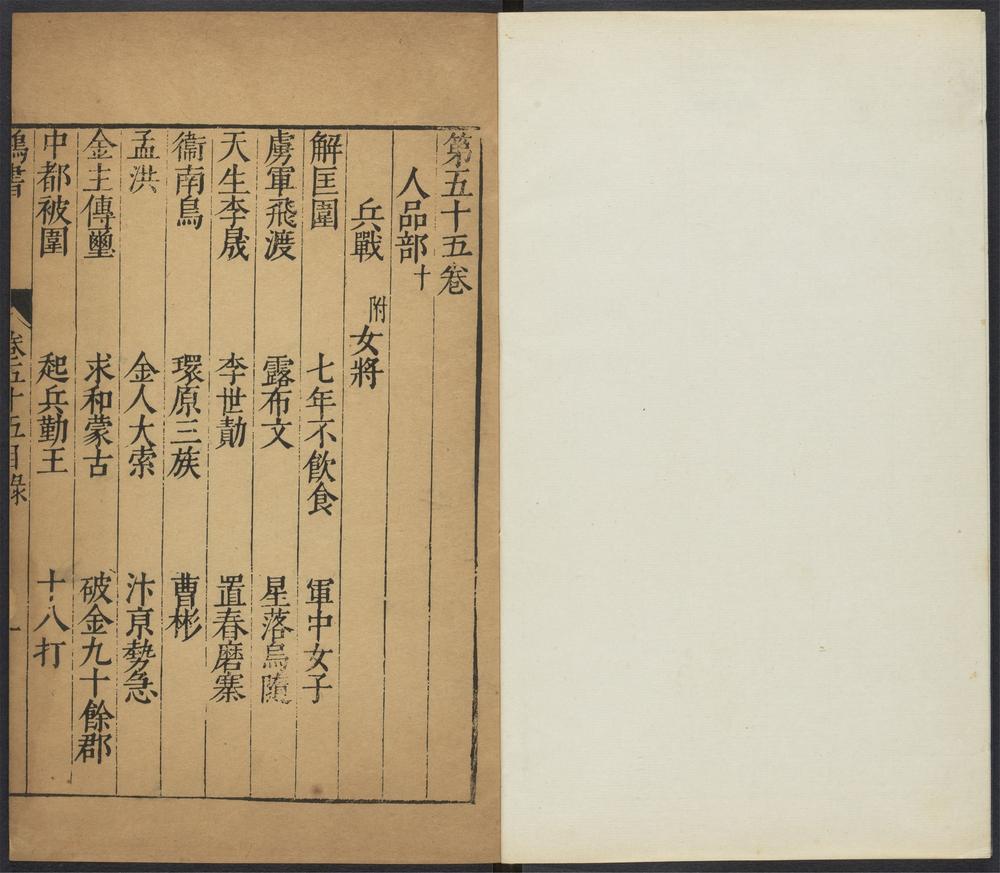 第五十五卷
人品部十
兵戰 附女將
解匡圍 七年不飲食 軍中女子
虜軍飛渡 露布文 星落烏隕
天生李晟 李世勣 置舂磨寨
衞南鳥 環原三族 曹彬
孟洪 金人大索 汴京勢急
金主傳璽 求和蒙古 破金九十餘郡
中都被圍 起兵勤王 十八打
鴻書 卷五十五目錄 一